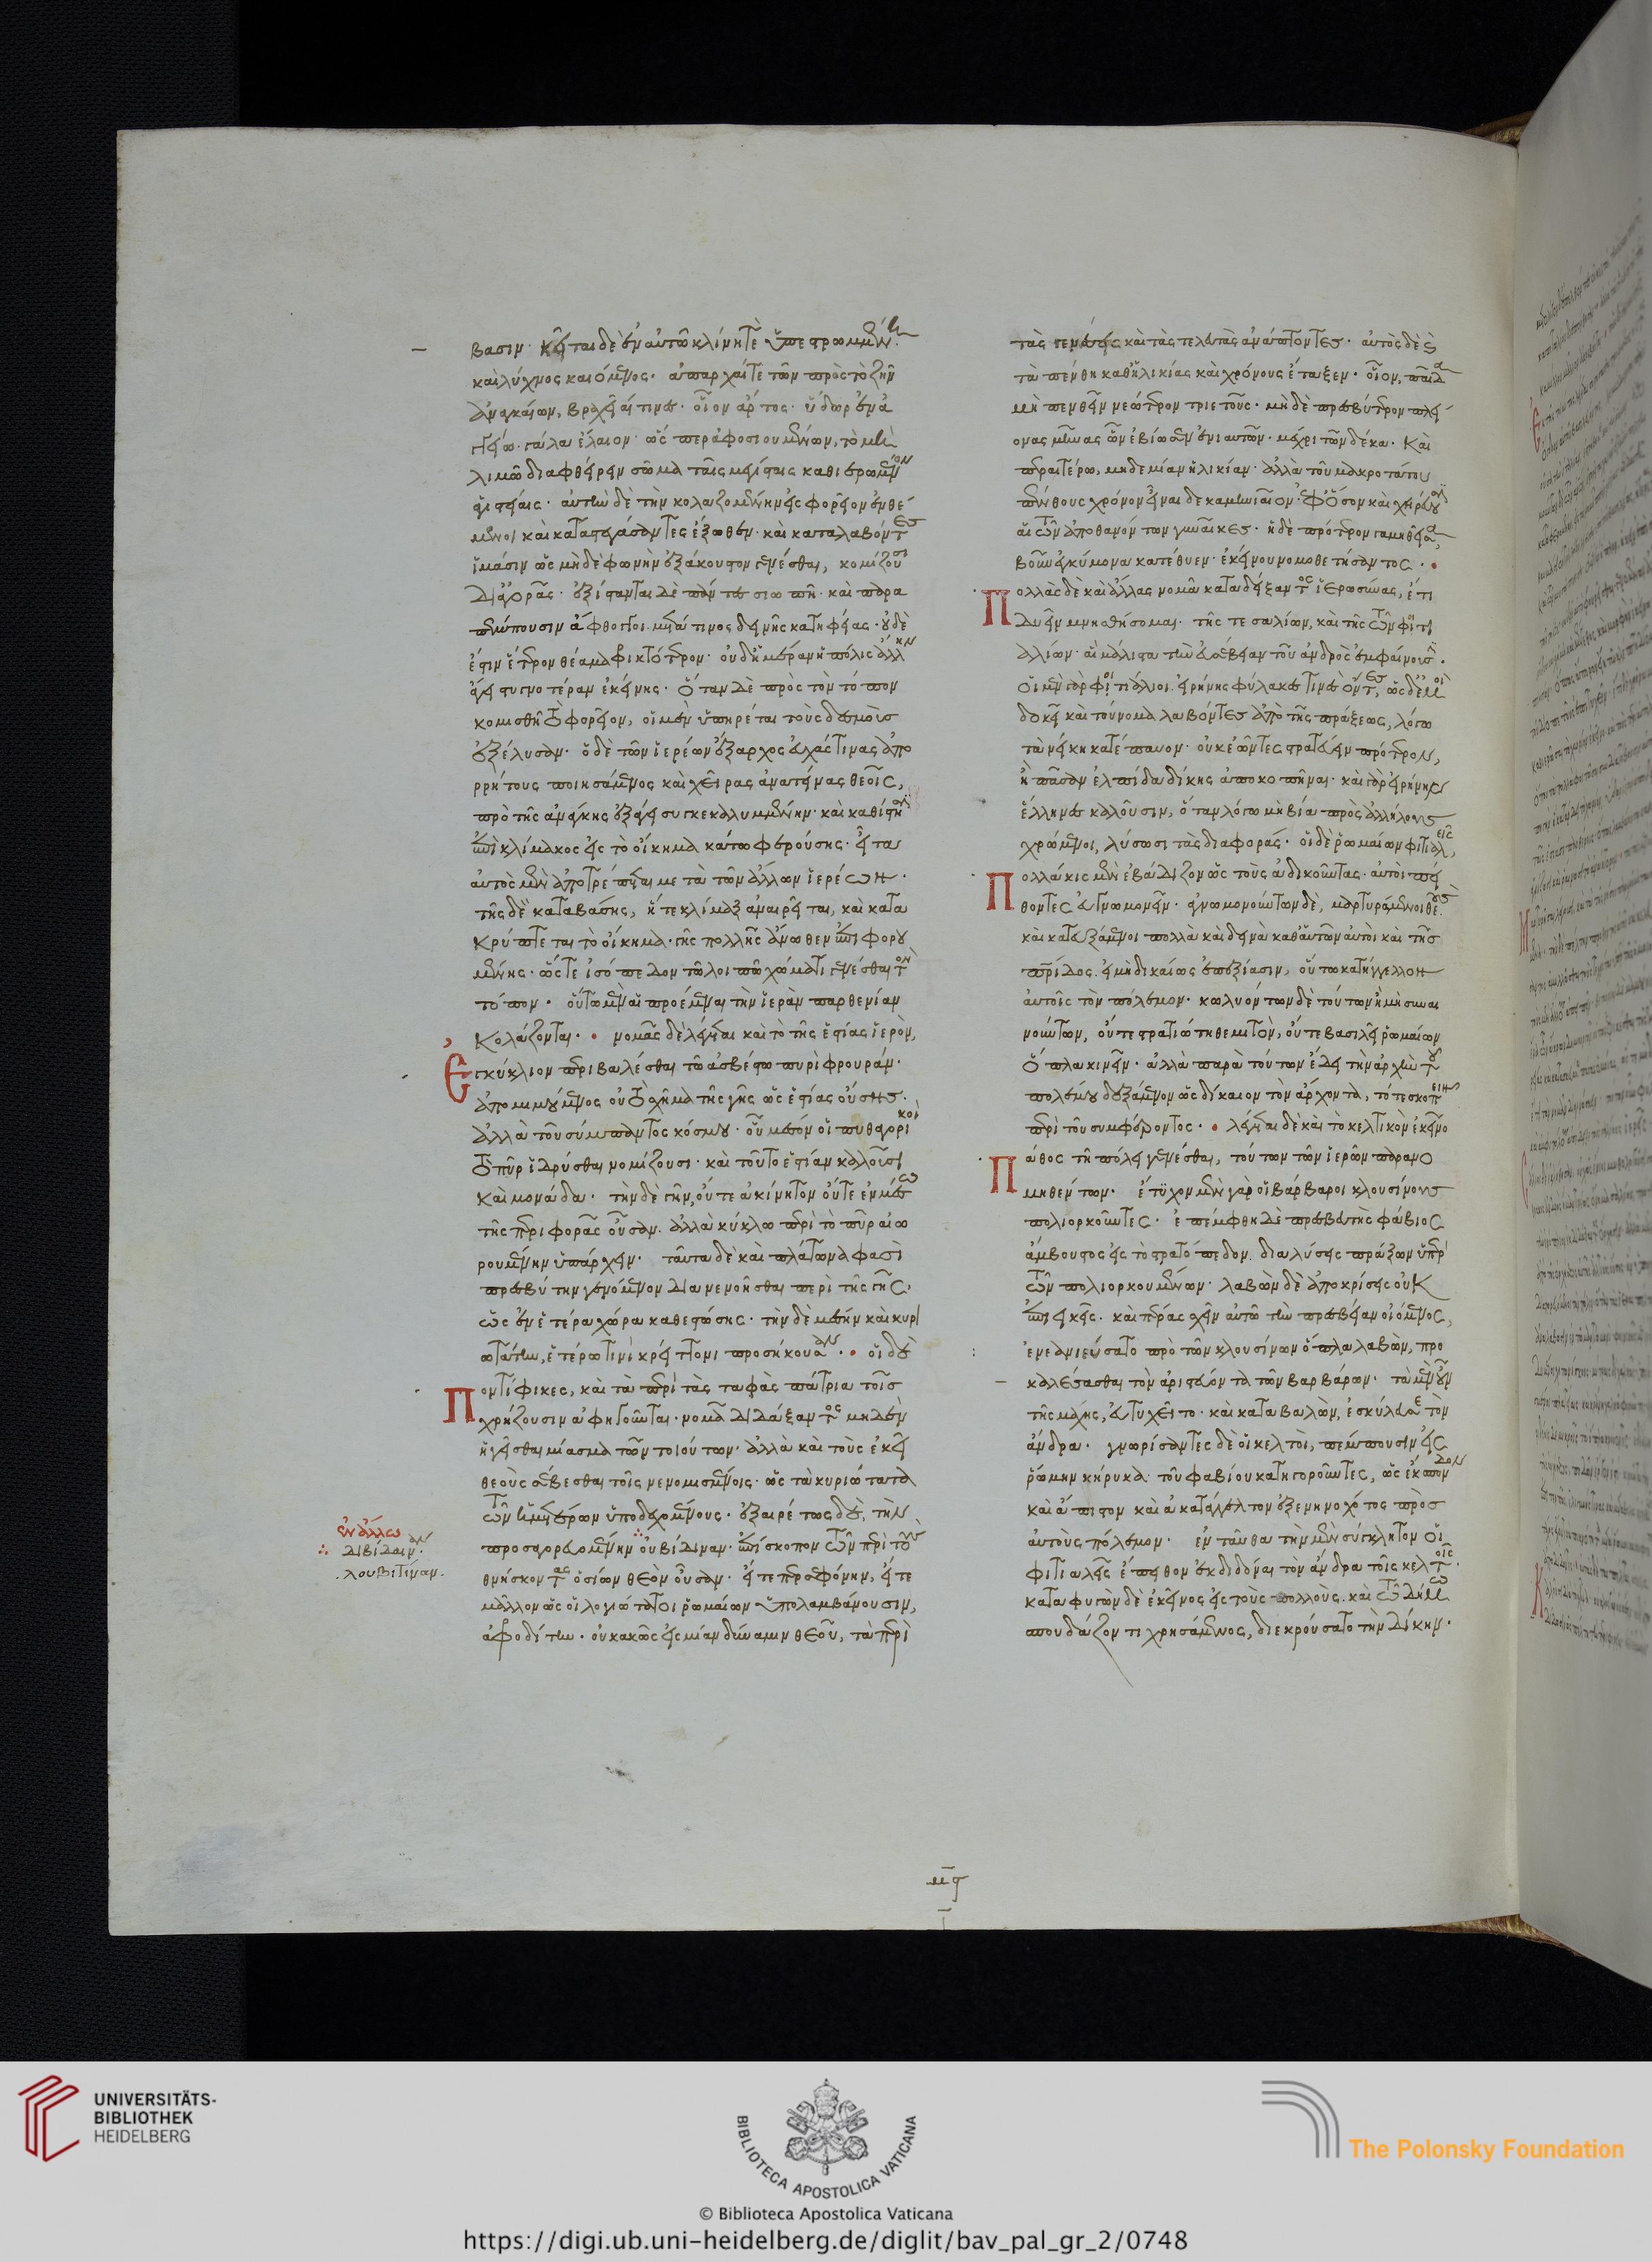 βασιν. κεῖται δὲ ἐν αὐτῶ κλίνη τὲ ὑπεστρωμμένη.
καὶ λύχνος καιόμενος. ἀπαρχαί τε τῶν πρὸς τὸ ζῆν
ἀναγκαίων, βραχεῖαί τινες. οἷον ἄρτος. ὕδωρ ἐν ἀ
γγείω. γάλα ἔλαιον. ὥσπερ ἀφοσιουμένων, τὸ μὴ
λιμῶ διαφθείρειν σῶμα ταῖς μεγίσταις καθιερωμένον
ἁγιστείαις. αὐτὴν δὲ τὴν κολαζομένην εἰς φορεῖον ἐνθέ
μενοι καὶ καταστεγάσαντες ἔξωθεν. καὶ καταλαβόντες
ἱμάσιν ὡς μὴδὲ φωνὴν ἐξάκουστον γενέσθαι, κομίζουσι
δι' ἀγορᾶς. ἐξίστανται δὲ πάντες σιωπῆ. καὶ παρα
πέμπουσιν ἄφθογγοι μετά τινος δεινῆς κατηφείας. οὐδὲ
ἔστιν ἕτερον θέαμα φρικτότερον. οὐδ' ἡμέραν ἡ πόλις ἄλλην
ἄγει στυγνοτέραν ἐκείνης. ὅταν δὲ πρὸς τὸν τόπον
κομισθῆ τὸ φορεῖον, οἱ μὲν ὑπηρέται τοὺς δεσμοὺς
ἐξέλυσαν. ὁ δὲ τῶν ἱερέων ἔξαρχος εὐχάς τινας ἀπο
ρρήτους ποιησάμενος καὶ χεῖρας ἀνατείνας θεοῖς,
πρὸ τῆς ἀνάγκης ἐξάγει συγκεκαλυμμένην. καὶ καθίστησιν
ἐπὶ κλίμακος εἰς τὸ οἴκημα κάτω φερούσης. εἶτα
αὐτὸς μὲν ἀποτρέπεται μετὰ τῶν ἄλλων ἱερέων.
τῆς δὲ καταβάσης, ἥ τε κλίμαξ ἀναιρεῖται, καὶ κατα
κρύπτεται τὸ οἴκημα. γῆς πολλῆς ἄνωθεν ἐπιφορου
μένης. ὥστε ἰσόπεδον τῶ λοιπῶ χώματι γενέσθαι τὸν
τόπον. οὕτω μὲν αἱ προέμεναι τὴν ἱερὰν παρθενίαν
κολάζονται. νομᾶς δὲ λέγεται καὶ τὸ τῆς ἑστίας ἱερὸν,
ἐγκύκλιον περιβαλέσθαι τῶ ἀσβέστω πυρὶ φρουράν.
ἀπομιμούμενος οὐ τὸ σχῆμα τῆς γῆς ὡς ἑστίας οὔσης.
ἀλλὰ τοῦ σύμπαντος κόσμου. οὗ μέσον οἱ πυθαγορικοὶ
τὸ πῦρ ἱδρύσθαι νομίζουσι. καὶ τοῦτο ἑστίαν καλοῦσι
καὶ μονάδα. τὴν δὲ γῆν, οὔτε ἀκίνητον οὔτε ἐν μέσω
τῆς περιφορᾶς οὖσαν. ἀλλὰ κύκλω περὶ τὸ πῦρ αἰω
ρουμένην ὑπάρχειν. ταῦτα δὲ καὶ πλάτωνα φασὶ
πρεσβύτην γενόμενον διανενοῆσθαι περὶ τῆς γῆς,
ὡς ἐν ἑτέρα χώρα καθεστώσης. τὴν δὲ μέσην καὶ κυρι
ωτάτην, ἑτέρω τινὶ κρείττονι προσήκουσαν. οἱ δὲ
Ποντίφικες, καὶ τὰ περὶ τὰς ταφὰς πάτρια τοῖς
χρήζουσιν ἀφηγοῦνται. νομᾶ διδάξαντος μηδὲν
ἡγεῖσθαι μίασμα τῶν τοιούτων. ἀλλὰ καὶ τοὺς ἐκεῖ
θεοὺς σέβεσθαι τοῖς νενομισμένοις. ὡς τὰ κυριώτατα
τῶν ἡμετέρων ὑποδεχομένους. ἐξαιρέτως δὲ, τὴν
προσαγορευομένην οὐβίδιναν. ἐπίσκοπον τῶν περὶ τοὺς
θνήσκοντας ὁσίων θεὸν οὖσαν. εἴτε περσεφόνην, εἴτε
μᾶλλον ὡς οἱ λογιώτατοι ῥωμαίων ὑπολαμβάνουσιν,
ἀφροδίτην. οὐ κακῶς εἰς μίαν δύναμιν θεοῦ, τὰ περὶ
ἐν ἄλλω
λουβιτίναν.
τὰς γενέσεις καὶ τὰς τελευτὰς ἀνάπτοντες. αὐτὸς δὲ καὶ
τὰ πένθη καθ' ἡλικίας καὶ χρόνους ἔταξεν. οἷον, παῖδα
μὴ πενθεῖν νεώτερον τριετοῦς. μὴδὲ πρεσβύτερον πλεί
ονας μῆνας ὧν ἐβίωσεν ἐνιαυτῶν. μέχρι τῶν δέκα. καὶ
περαιτέρω, μηδεμίαν ἡλικίαν. ἀλλὰ τοῦ μακροτάτου
πένθους χρόνον εἶναι δεκαμηνιαῖον. ἐφ' ὅσον καὶ χηρεύουσιν
αἱ τῶν ἀποθανόντων γυναῖκες. ἡ δὲ πρότερον γαμηθεῖσα,
βοῦν ἐγκύμονα κατέθυεν. ἐκείνου νομοθετήσαντος.
Πολλὰς δὲ καὶ ἄλλας νομᾶ καταδείξαντος ἱερωσύνας, ἔτι
δυεῖν μνησθήσομαι. τῆς τε σαλίων, καὶ τῆς τῶν φιτι
αλίων. αἳ μάλιστα τὴν εὐσέβειαν τοῦ ἀνδρὸς ἐμφαίνουσι.
οἱ μὲν γὰρ φιτιάλιοι. εἰρήνης φύλακές τινες ὄντες, ὡς δ' ἐμοὶ
δοκεῖ καὶ τοὔνομα λαβόντες ἀπὸ τῆς πράξεως, λόγω
τὰ νείκη κατέπαυον. οὐκ ἐῶντες στρατεύειν πρότερον,
ἢ πᾶσαν ἐλπίδα δίκης ἀποκοπῆναι. καὶ γὰρ εἰρήνην
ἕλληνες καλοῦσιν, ὅταν λόγω μὴ βία πρὸς ἀλλήλους
χρώμενοι, λύσωσι τὰς διαφοράς. οἱ δὲ ῥωμαίων φιτιαλεῖς,
Πολλάκις μὲν ἐβάδιζον ὡς τοὺς ἀδικοῦντας. αὐτοὶ πεί
θοντες εὐγνωμονεῖν. ἀγνωμονούντων δὲ, μαρτυράμενοι θεοὺς.
καὶ κατευξάμενοι πολλὰ καὶ δεινὰ καθ' αὑτῶν αὐτοὶ καὶ τῆς
πατρίδος. εἰ μὴ δικαίως ἐπεξίασιν, οὕτω κατήγγελλον
αὐτοῖς τὸν πόλεμον. κωλυόντων δὲ τούτων ἢ μὴ συναι
νούντων, οὔτε στρατιώτη θεμιτὸν, οὔτε βασιλεῖ ῥωμαίων
ὅπλα κινεῖν. ἀλλὰ παρὰ τούτων ἔδει τὴν ἀρχὴν τοῦ
πολέμου δεξάμενον ὡς δίκαιον τὸν ἄρχοντα, τότε σκοπεῖν
περὶ τοῦ συμφέροντος. λέγεται δὲ καὶ τὸ κελτικὸν ἐκεῖνο
Πάθος τῆ πόλει γενέσθαι, τούτων τῶν ἱερῶν παρανο
μηθέντων. ἔτυχον μὲν γὰρ οἱ βάρβαροι κλουσίνους
πολιορκοῦντες. ἐπέμφθη δὲ πρεσβευτὴς φάβιος
ἄμβουστος εἰς τὸ στρατόπεδον. διαλύσεις πράξων ὑπὲρ
τῶν πολιορκουμένων. λαβὼν δὲ ἀποκρίσεις οὐκ
ἐπιεικεῖς. καὶ πέρας ἔχειν αὐτῶ τὴν πρεσβείαν οἰόμενος,
ἐνεανιεύσατο πρὸ τῶν κλουσίνων ὅπλα λαβὼν, προ
καλέσασθαι τὸν ἀριστεύοντα τῶν βαρβάρων. τὰ μὲν οὖν
τῆς μάχης, εὐτυχεῖτο. καὶ καταβαλὼν, ἐσκύλευσε τὸν
ἄνδρα. γνωρίσαντες δὲ οἱ κελτοὶ, πέμπουσιν εἰς
ῥώμην κήρυκα. τοῦ φαβίου κατηγοροῦντες, ὡς ἔκσπονδον
καὶ ἄπιστον καὶ ἀκατάγγελτον ἐξενηνοχότος πρὸς
αὐτοὺς πόλεμον. ἐνταῦθα τὴν μὲν σύγκλητον οἱ
φιτιαλεῖς ἔπειθον ἐκδιδόναι τὸν ἄνδρα τοῖς κελτοῖς.
καταφυγὼν δὲ ἐκεῖνος εἰς τοὺς πολλοὺς. καὶ τῶ δήμω
σπουδάζοντι χρησάμενος, διεκρούσατο τὴν δίκην.
UNIVERSITÄTS-
BIBLIOTHEK
HEIDELBERG
BIBLIOTECA APOSTOLICA VATICANA
The Polonsky Foundation
© Biblioteca Apostolica Vaticana
https://digi.ub.uni-heidelberg.de/diglit/bav_pal_gr_2/0748